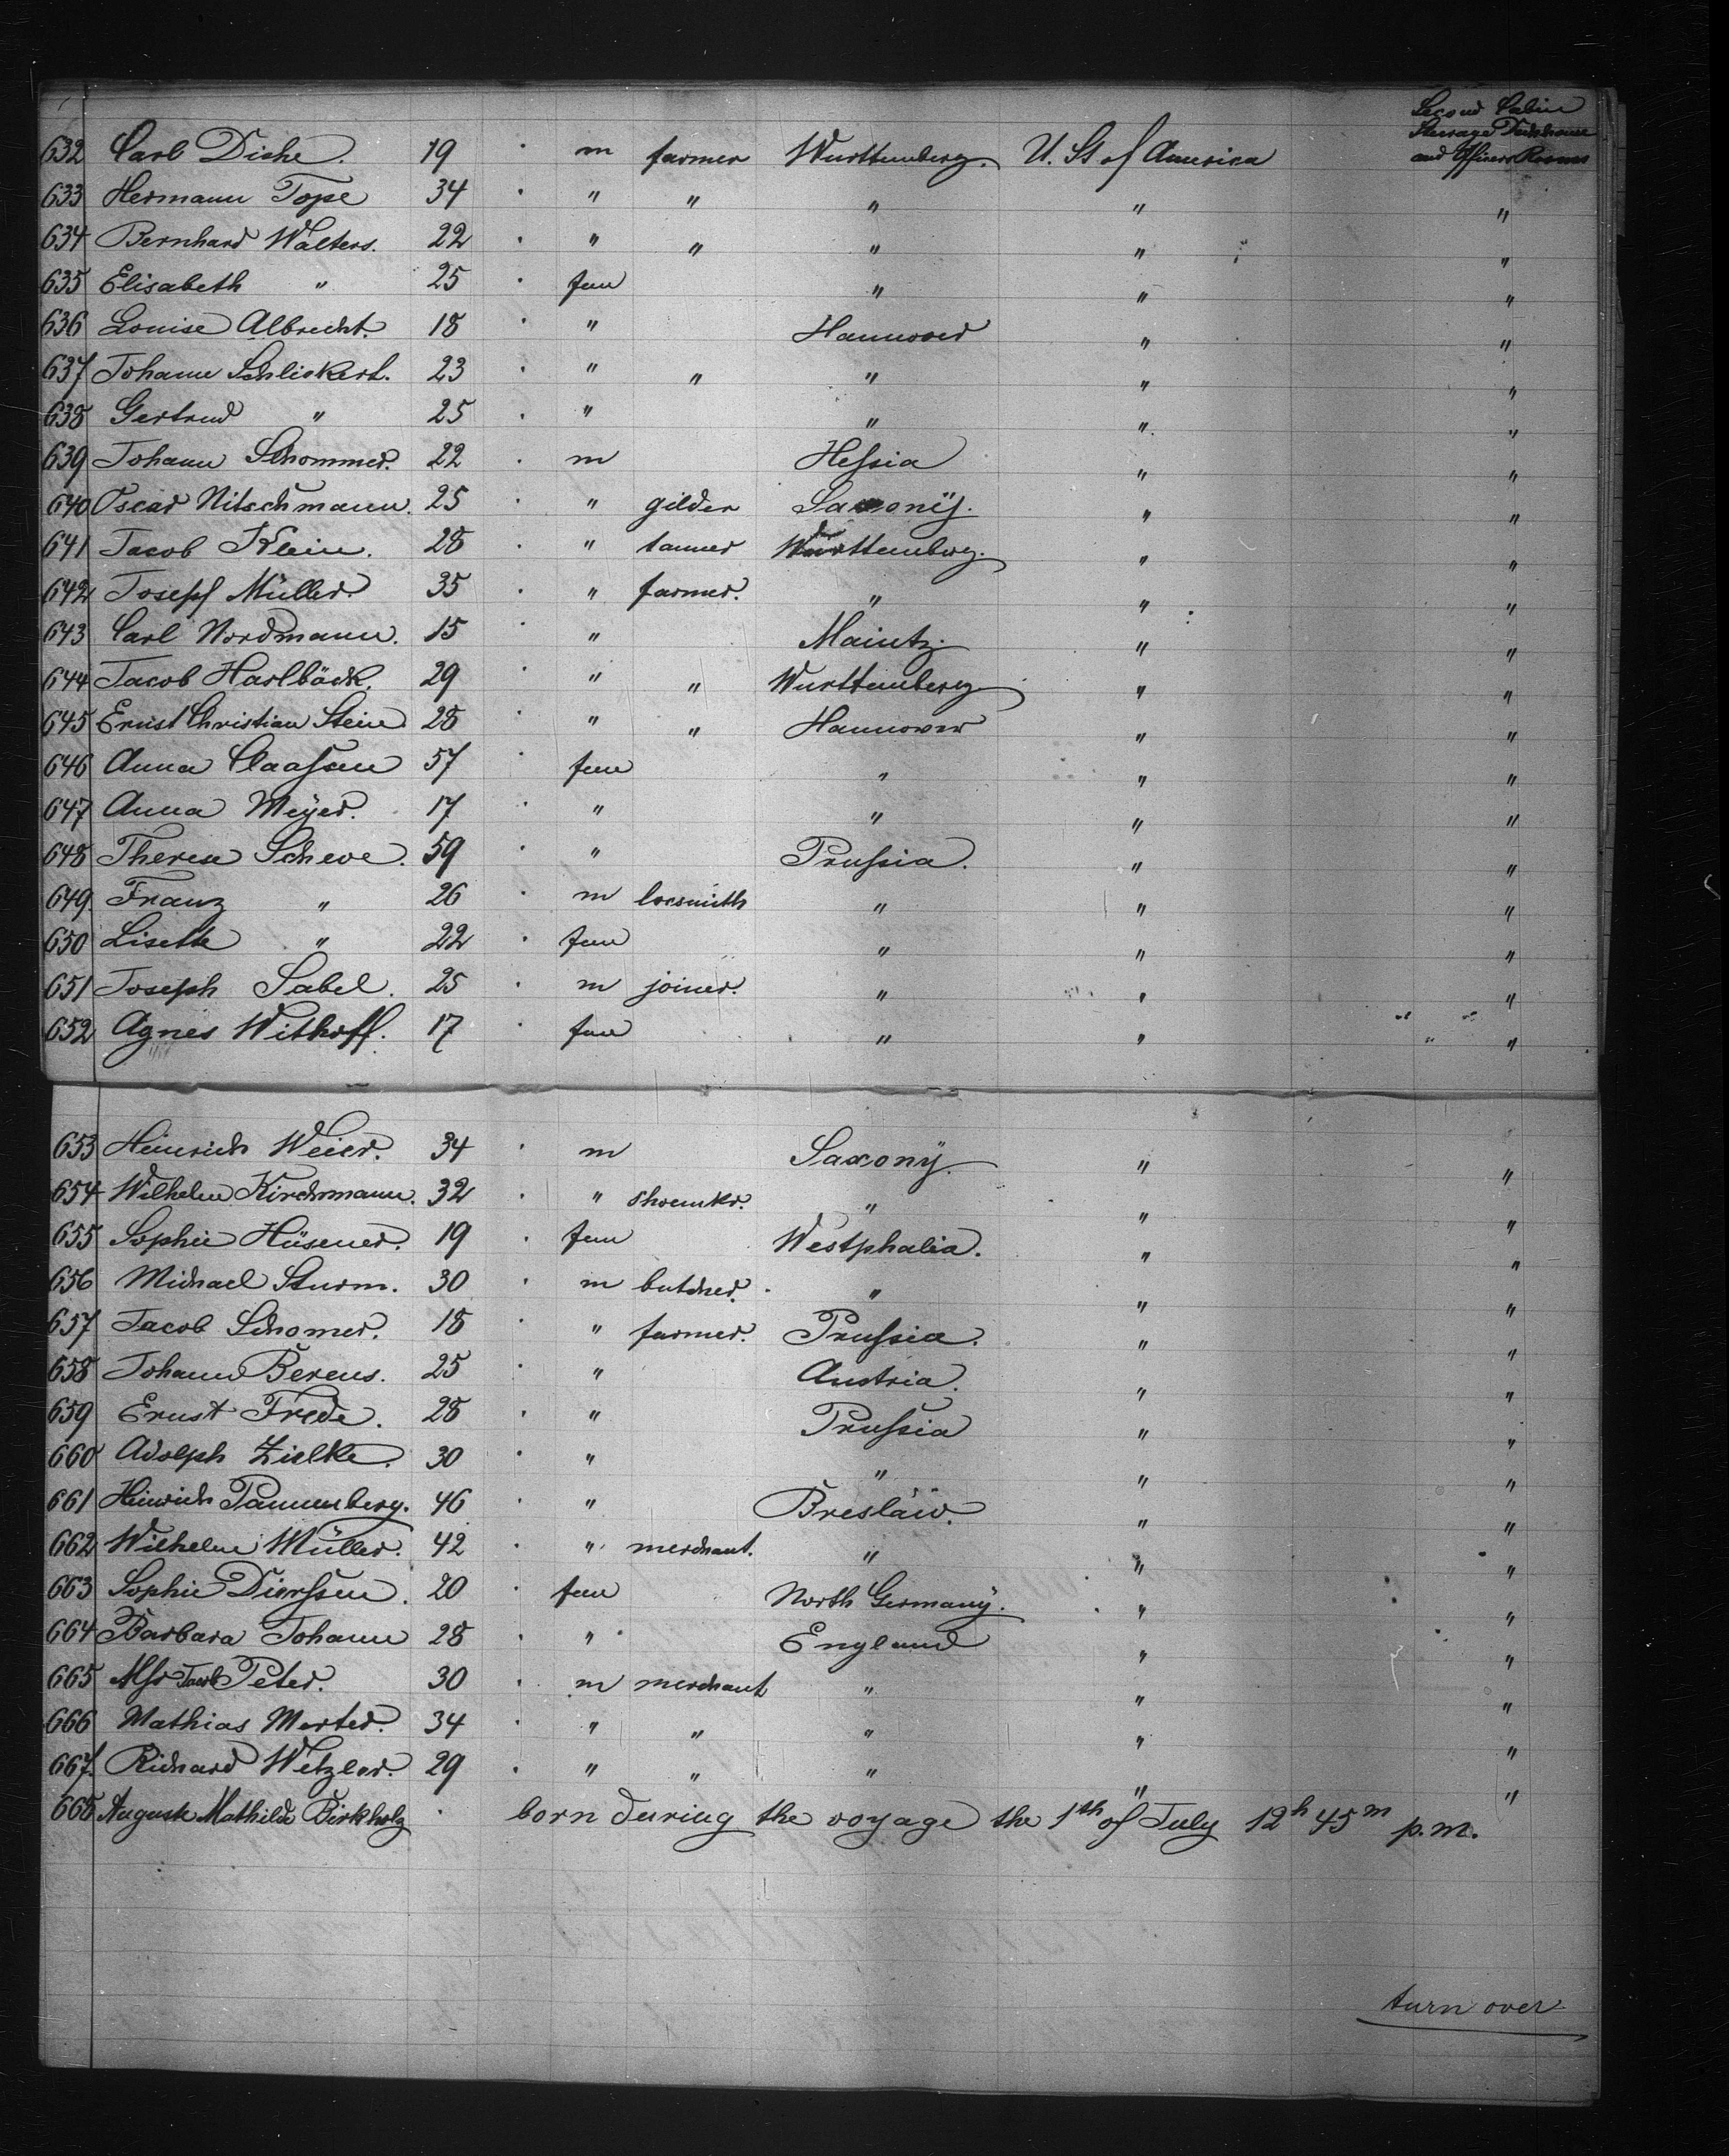 Second Cabin
Steerage Deckhouse
and Officers Rooms
632 Carl Dishe. 19 m farmer Wurttemberg. U. St of America
633 Hermann Tope 34 " " " " "
634 Bernhard Walters. 22 " " " " "
635 Elisabeth " 25 fem " " "
636 Louise Albrecht. 18 " Hannover " "
637 Johann Schlickert. 23 " " " " "
638 Gertrud " 25 " " " "
639 Johann Schommer. 22 m Hessia " "
640 Oscar Nitschmann. 25 " gilder Saxony. " "
641 Jacob Klein. 28 " tanner Wurttemberg. " "
642 Joseph Müller. 35 " farmer. " " "
643 Carl Nordmann. 15 " Maintz. " "
644 Jacob Haslböck. 29 " " Wurttemberg " "
645 Ernst Christian Stein 28 " " Hannover " "
646 Anna Claassen 57 fem " " "
647 Anna Meÿer. 17 " " " "
648 Therese Scheve. 59 " Prussia. " "
649. Franz " 26 m locsmith " " "
650 Lisette " 22 fem " " "
651 Joseph Sabel. 25 m joiner. " " "
652 Agnes Withoff. 17 fem " " "
653 Heinrich Weier. 34 m Saxonÿ. " "
654 Wilhelm Kirchmann. 32 " shoemkr. " " "
655 Sophie Hüsener. 19 fem Westphalia. " "
656 Michael Sturm. 30 m butcher. " " "
657 Jacob Schomer. 18 " farmer. Prussia. " "
658 Johann Berens. 25 " Austria. " "
659 Ernst Frede. 28 " Prussia " "
660 Adolph Zielke. 30 " " " "
661 Heinrich Pannenberg. 46 " Breslau. " "
662 Wilhelm Müller. 42 " merchant. " " "
663 Sophie Dierssen. 20 fem North Germanÿ. " "
664 Barbara Johann 28 " England " "
665 Jacob Peter. 30 m merchant " " "
666 Mathias Merter. 34 " " " " "
667. Richard Wetzler. 29 " " " " "
668 Auguste Mathilde Birkholz born during the voyage the 1th of July 12h 45m p.m.
turn over